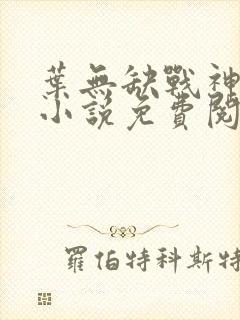 葉無缺戰神
小說免費閱
羅伯特科斯特